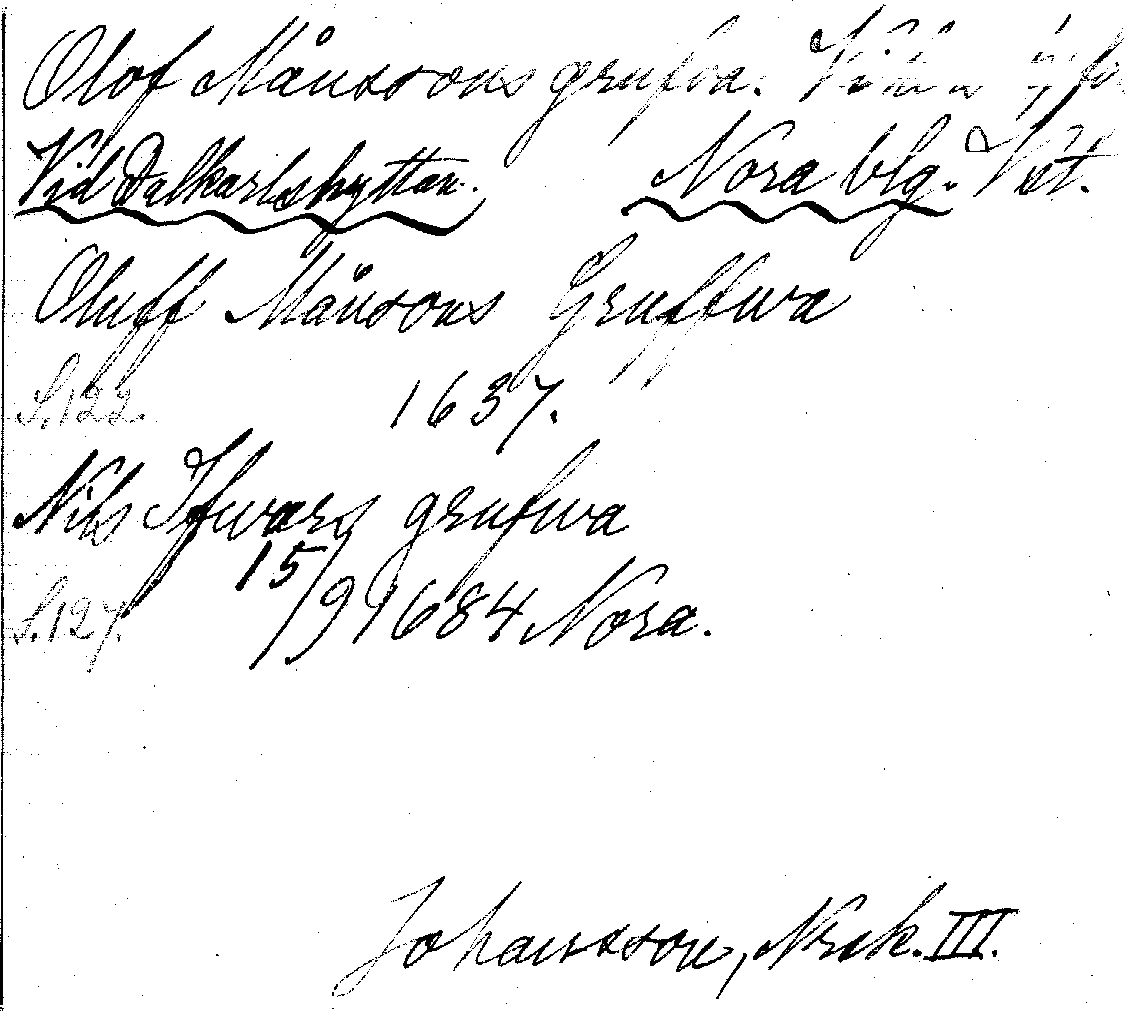 Olof Månssons grufva.
Vid Dalkarlshyttan. Nora blg. Vst.
Oluff Månsons Gruffwa
S. 122. 1637.
Nils Ifwars grufwa
S. 127. 15/9 1684 Nora.
Johansson, Nrck. III.